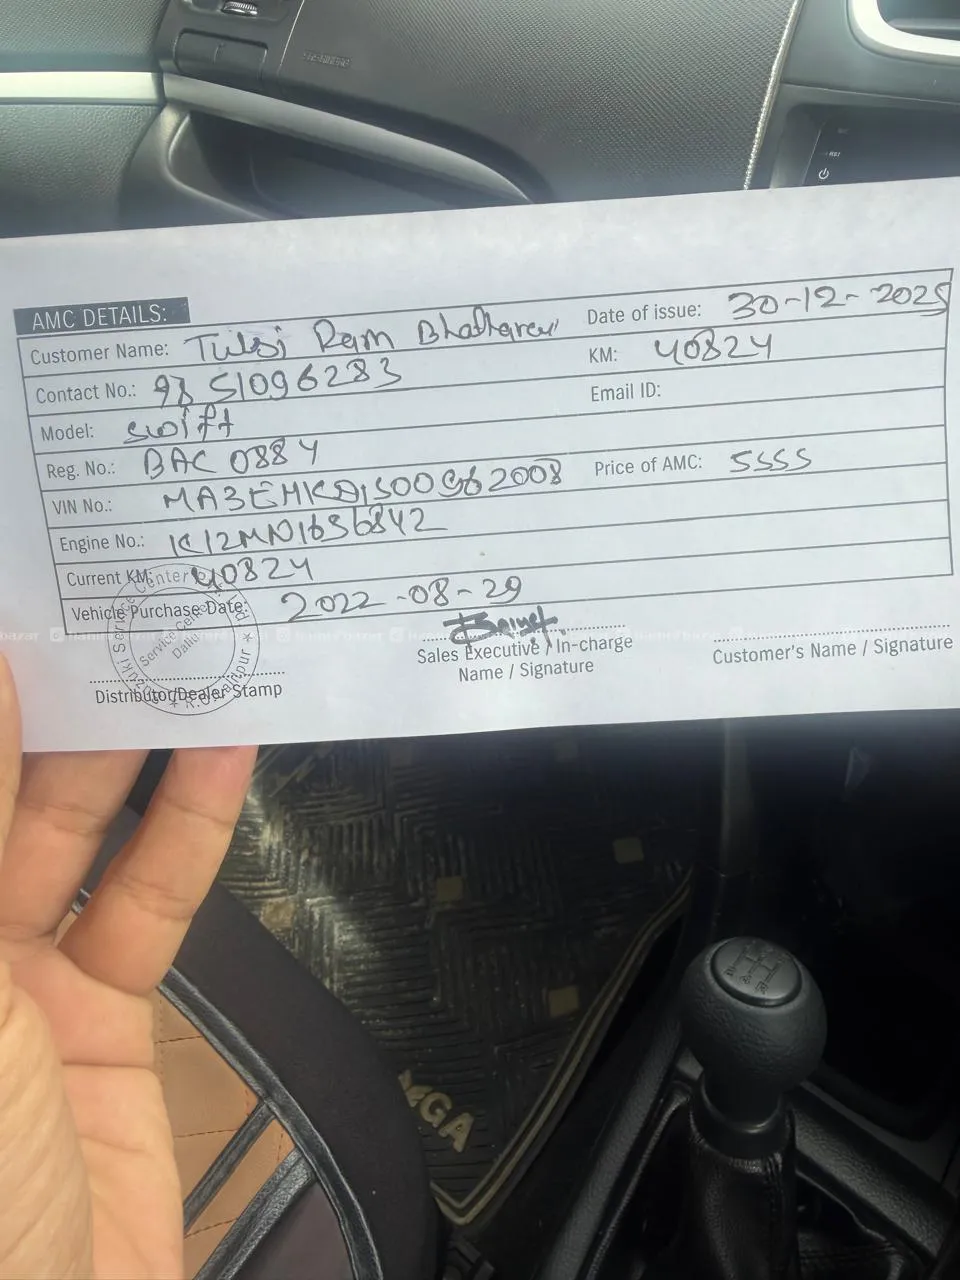 AMC DETAILS:
Customer Name: Tulsi Ram Bhattarai Date of issue: 30-12-2025
Contact No.: 9851096283 KM: 40824
Model: swift Email ID:
Reg. No.: BAC 0884
VIN No.: Price of AMC: 5555
Engine No.: K12MN1656842
Current KM: 40824
Vehicle Purchase Date: 2022-08-29
Distributor/Dealer Stamp
Sales Executive / In-charge
Name / Signature
Customer's Name / Signature
Service Center